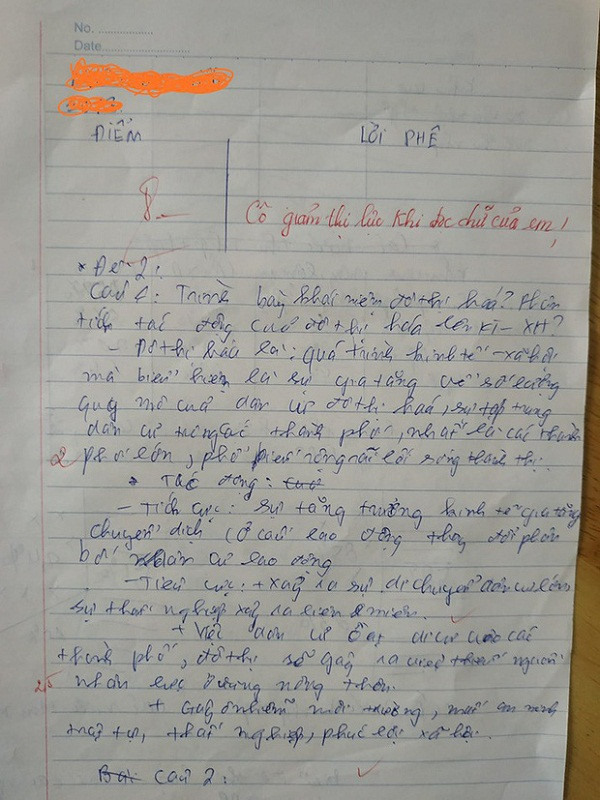 No. ................
Date.......................
ĐIỂM
LỜI PHÊ
8.-
Cô giảm thị lực khi đọc chữ của em!
* Đề 2:
Câu 1: Trình bày khái niệm đô thị hoá? Phân
tích tác động của đô thị hóa lên KT - XH?
- Đô thị hóa là: quá trình kinh tế - xã hội
mà biểu hiện là sự gia tăng về số lượng
quy mô của dân cư đô thị hoá, sự tập trung
dân cư trong các thành phố, nhất là các thành
2 phố lớn, phổ biến rộng rãi lối sống thành thị.
* Tác động:
- Tích cực: sự tăng trưởng kinh tế gia tăng
chuyển dịch cơ cấu lao động thay đổi phân
bố dân cư lao động
- Tiêu cực: + xảy ra sự di chuyển dân cư lớn
sự thất nghiệp xảy ra liên miên.
+ Việc dân cư ồ ạt di cư vào các
thành phố, đô thị sẽ gây ra việc nguồn
2,5 nhân lực ở vùng nông thôn.
+ Gây ô nhiễm môi trường, mất an ninh
trật tự, thất nghiệp, phúc lợi xã hội.
Bài Câu 2: